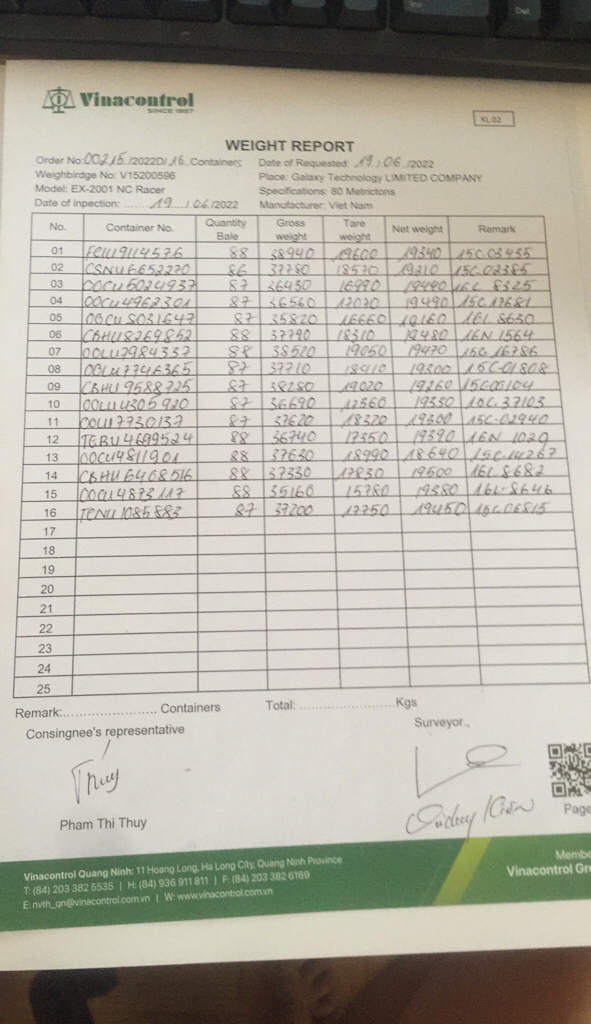 Vinacontrol
SINCE 1957
KL.02
WEIGHT REPORT
Order No: 00215/2022D/ 16 Containers Date of Requested: 19/06/2022
Weighbirdge No: V15200596 Place: Galaxy Technology LIMITED COMPANY
Model: EX-2001 NC Racer Specifications: 80 Metrictons
Date of inpection: ......19/06/2022 Manufacturer: Viet Nam
No. Container No. Quantity Bale Gross weight Tare weight Net weight Remark
01 FCIU9114576 88 38940 19600 19340 15C.03455
02 CSNU6652270 86 37780 18570 19210 15C.02385
03 OOCU5024937 87 36450 16990 19490 8325
04 OOCU4962301 87 36560 17070 19490 15C.17681
05 OOCU8031647 87 35820 16660 19160 16L 8630
06 CBHU8269852 88 37790 18310 19480 16N 1564
07 OOLU7984337 88 38520 19050 19470 15C 16786
08 OOLU7746365 87 37710 18410 19300 15C-01808
09 CBHU9588725 87 38280 19020 19260 15C00104
10 OOLU4305920 87 36690 17360 19330 15C.37103
11 OOLU7730137 87 37620 18320 19300 15C-02940
12 TGBU4699524 88 36740 17350 19390 16N 1029
13 OOCU4811901 88 37630 18990 18640 15C-14267
14 CBHU6408516 88 37330 17830 19500 16L 8682
15 OOCU4873117 88 35160 15780 19380 16L-8646
16 TCNU1085883 87 37200 17750 19450 15C.06815
17
18
19
20
21
22
23
24
25
Remark:........................ Containers Total: ........................Kgs
Consingnee's representative Surveyor.,
Thuy
Pham Thi Thuy
Page
Vinacontrol Quang Ninh: 11 Hoang Long, Ha Long City, Quang Ninh Province
T: (84) 203 382 5535 | H: (84) 936 911 811 | F: (84) 203 382 6169
E: nvth_qn@vinacontrol.com.vn | W: www.vinacontrol.com.vn
Membe
Vinacontrol Gro